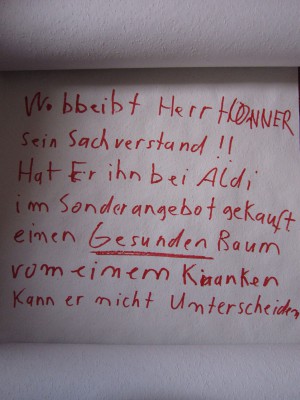 Wo bbeibt Herr HOONNER
sein Sachverstand !!
Hat Er ihn bei Aldi
im Sonderangebot gekauft
einen Gesunden Baum
vom einem Kranken
Kann er nicht Unterscheiden